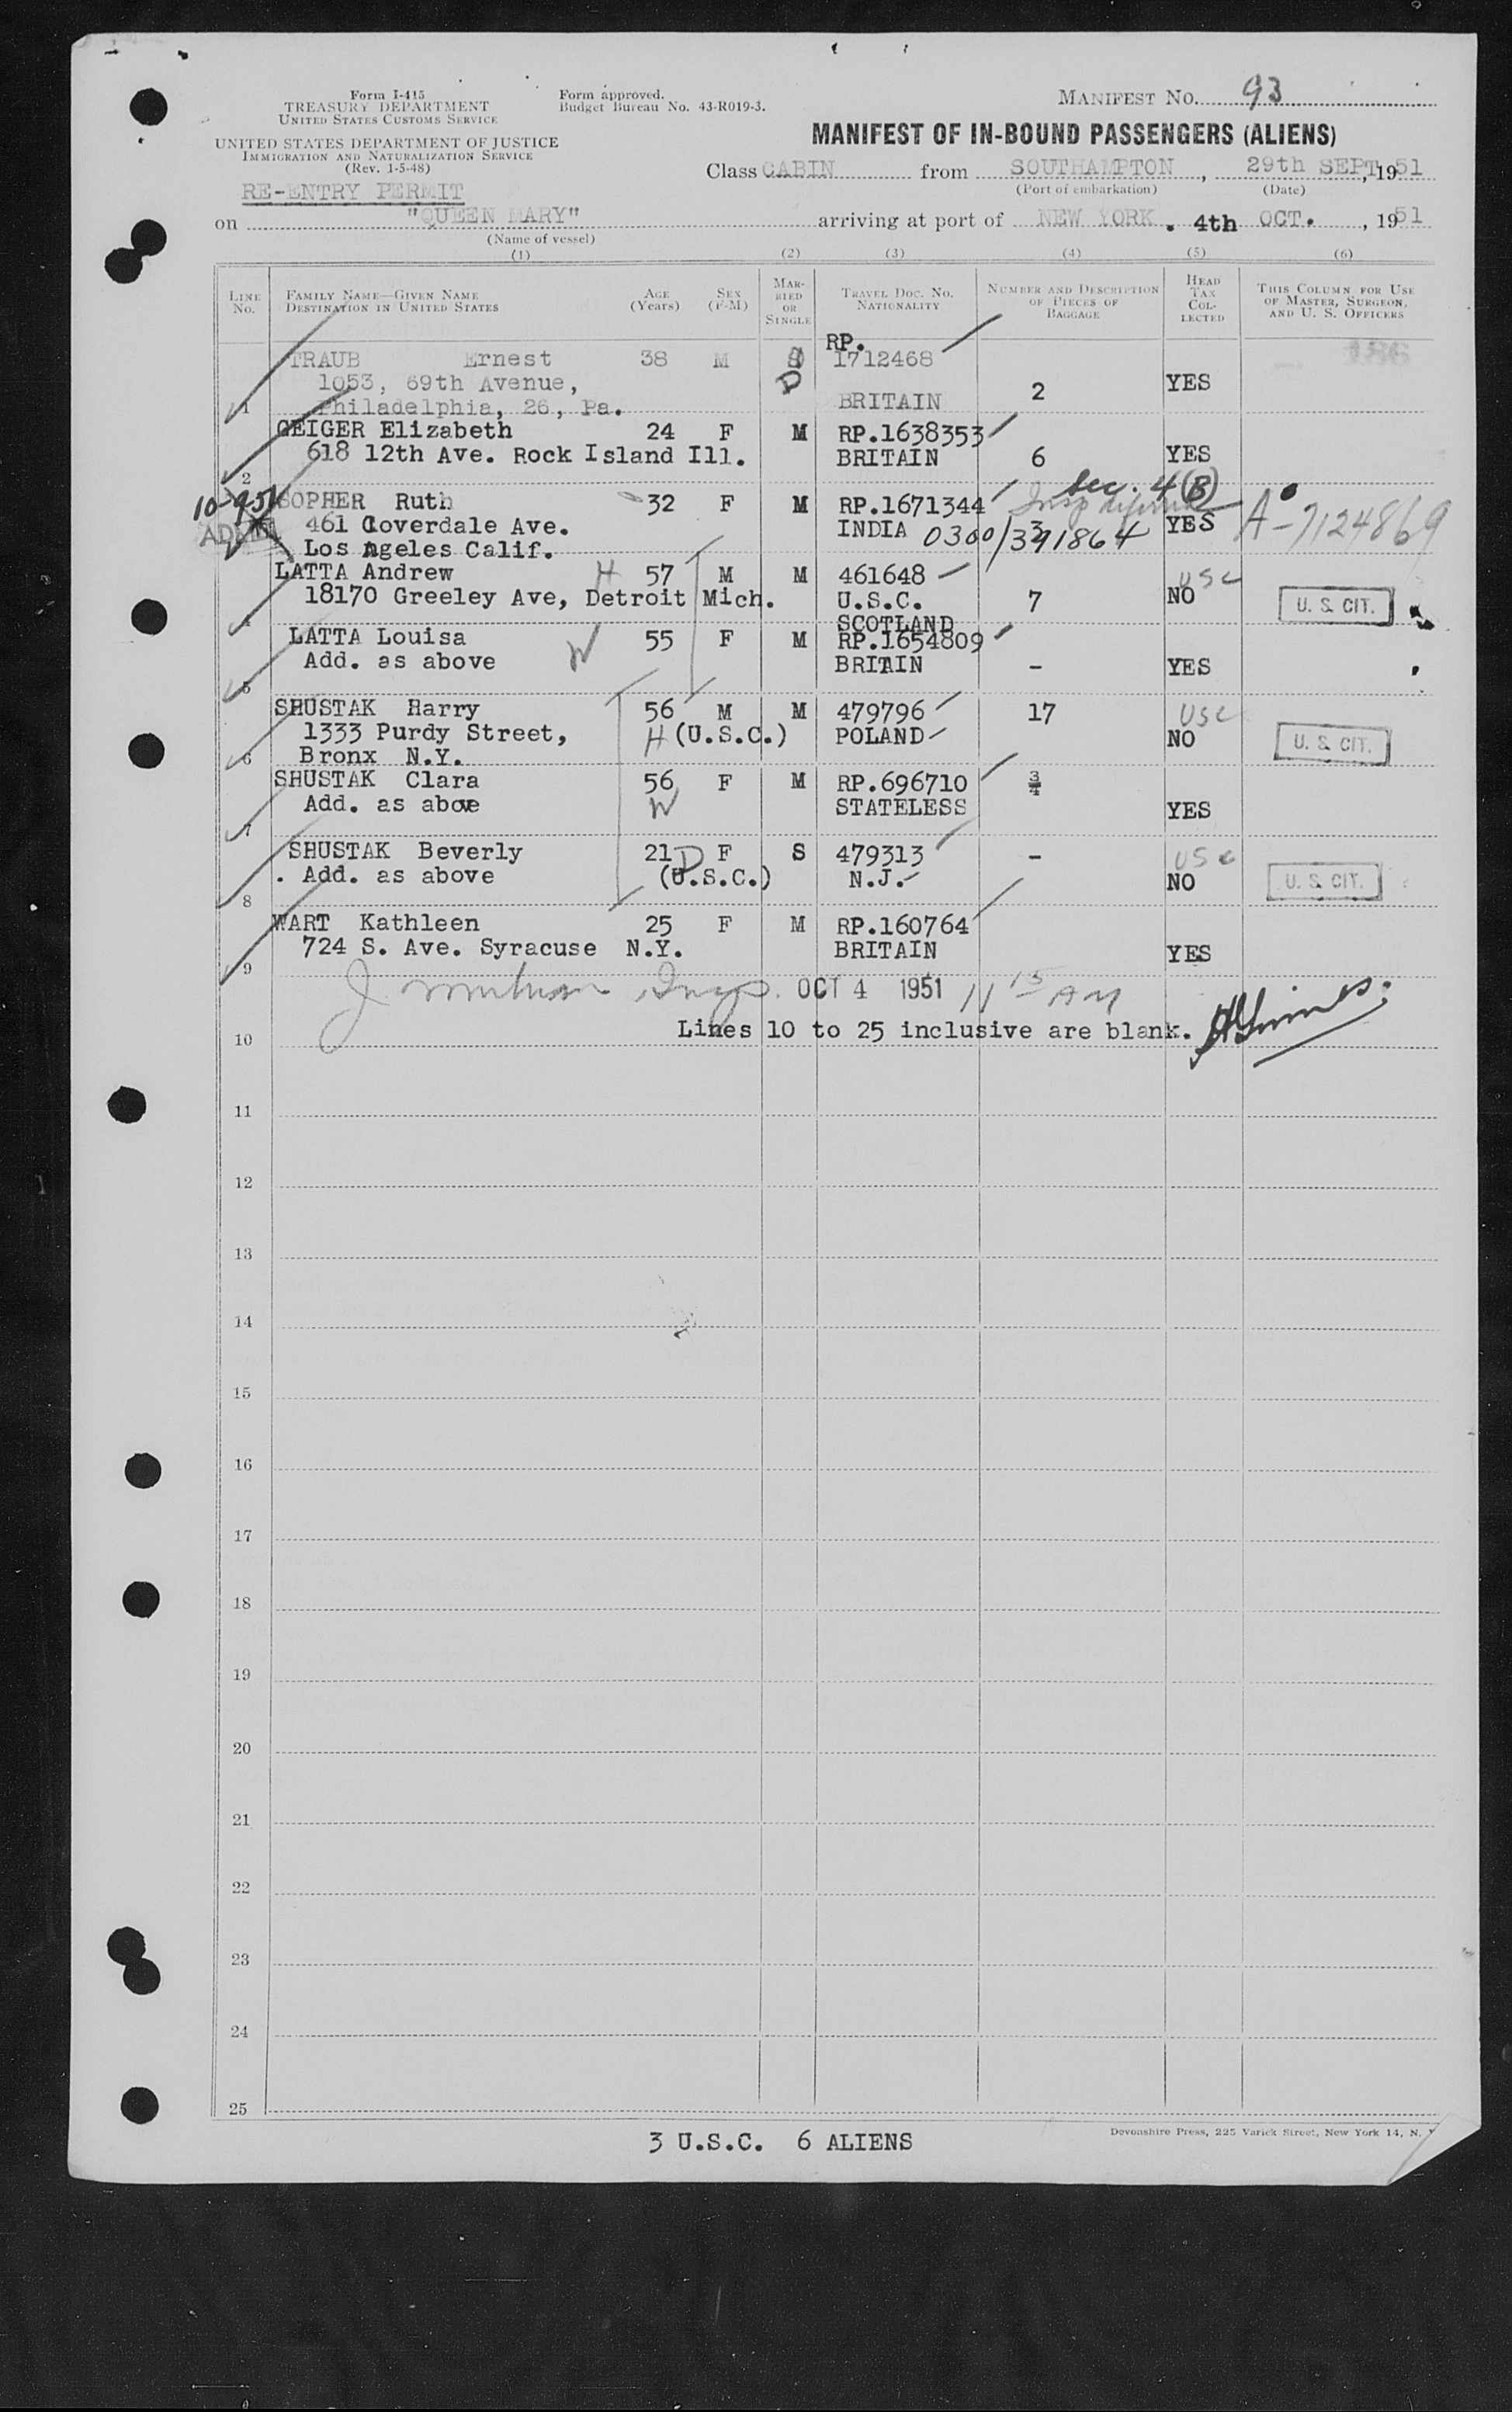 Form I-415
TREASURY DEPARTMENT
UNITED STATES CUSTOMS SERVICE
Form approved.
Budget Bureau No. 43-R019-3.
MANIFEST NO. 93
UNITED STATES DEPARTMENT OF JUSTICE
IMMIGRATION AND NATURALIZATION SERVICE
(Rev. 1-5-48)
MANIFEST OF IN-BOUND PASSENGERS (ALIENS)
Class CABIN from SOUTHAMPTON, 29th SEPT, 1951
(Port of embarkation) (Date)
RE-ENTRY PERMIT
on "QUEEN MARY" arriving at port of NEW YORK. 4th OCT., 1951
(Name of vessel)
(1) (2) (3) (4) (5) (6)
LINE NO.
FAMILY NAME—GIVEN NAME
DESTINATION IN UNITED STATES
AGE (Years)
SEX (F-M)
MARRIED OR SINGLE
TRAVEL DOC. NO.
NATIONALITY
NUMBER AND DESCRIPTION OF PIECES OF BAGGAGE
HEAD TAX COLLECTED
THIS COLUMN FOR USE OF MASTER, SURGEON, AND U. S. OFFICERS
RP.
TRAUB Ernest 38 M D 1712468 186
1053, 69th Avenue, 2 YES
1 Philadelphia, 26, Pa. BRITAIN
GEIGER Elizabeth 24 F M RP.1638353
618 12th Ave. Rock Island Ill. BRITAIN 6 YES
2
Sec. 4 (B)
10-9-51 SOPHER Ruth 32 F M RP.1671344 Insp
461 Coverdale Ave. INDIA 0300/391864 YES A-7124869
Los Angeles Calif.
LATTA Andrew H 57 M M 461648 USC
18170 Greeley Ave, Detroit Mich. U.S.C. 7 NO U. S. CIT.
4 SCOTLAND
LATTA Louisa W 55 F M RP.1654809
Add. as above BRITAIN - YES
5
SHUSTAK Harry 56 M M 479796 17 USC
1333 Purdy Street, H (U.S.C.) POLAND NO U. S. CIT.
6 Bronx N.Y.
SHUSTAK Clara 56 F M RP.696710 3/4
Add. as above W STATELESS YES
7
SHUSTAK Beverly 21 D F S 479313 - USC
. Add. as above (U.S.C.) N.J. NO U. S. CIT.
8
WART Kathleen 25 F M RP.160764
724 S. Ave. Syracuse N.Y. BRITAIN YES
9
J. Insp. OCT 4 1951 11 15 AM
Lines 10 to 25 inclusive are blank.
10
11
12
13
14
15
16
17
18
19
20
21
22
23
24
25
3 U.S.C. 6 ALIENS
Devonshire Press, 225 Varick Street, New York 14, N.